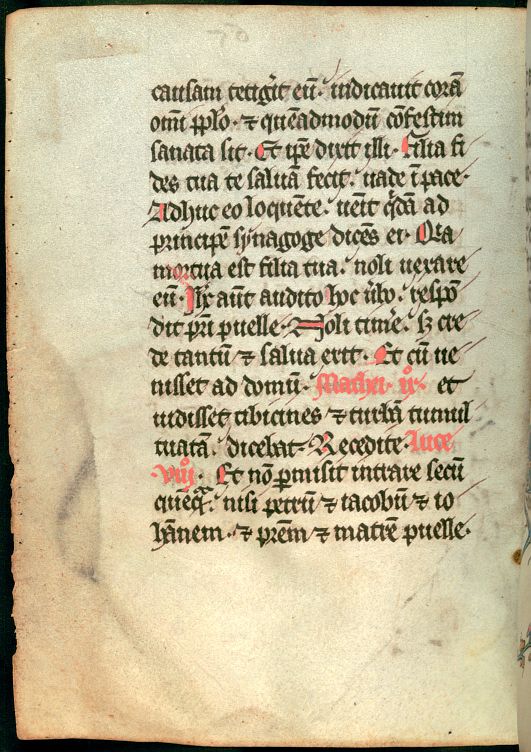 causam tetigit̾ eū. indicauit corā
om̄i pplo. ⁊ quēadmodū cōfestim
sanata sit. Et ip̄e dixit illi. Filia fi
des tua te saluā fecit. uade ī pace.
Adhuc eo loquēte. uēit qͥdā ad
principē synagoge dicēs ei. Quia
mortua est filia tua. noli uexare
eū. Ihc̄ aūt audito hoc ūbo. respō
dit pr̄i puelle. Noli timēe. sꝫ cre
de tantū ⁊ salua erit. Et cū ue
nisset ad domū. Mathei. ix. et
uidisset tibicines ⁊ turbā tumul
tuātā. dicebat. Recedite. Luce
.viij. Et nō ꝑmisit intrare secū
quēqᷓ. nisi petrū ⁊ iacobū ⁊ io
hānem. ⁊ pr̄em ⁊ matrē puelle.